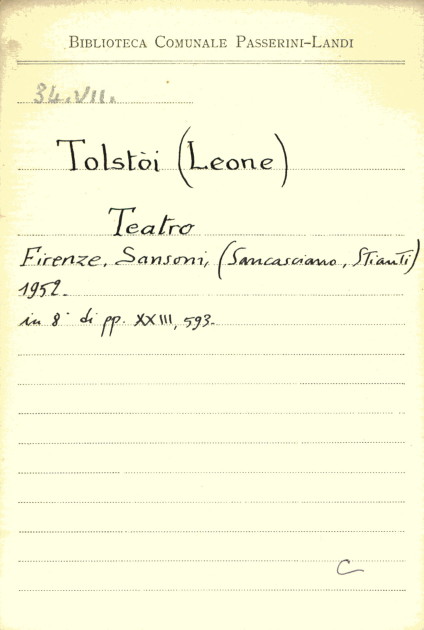 Biblioteca Comunale Passerini-Landi
34.VII.
Tolstòi (Leone)
Teatro
Firenze, Sansoni, (Sancasciano, Stianti)
1952.
in 8° di pp. XXIII, 593.
C